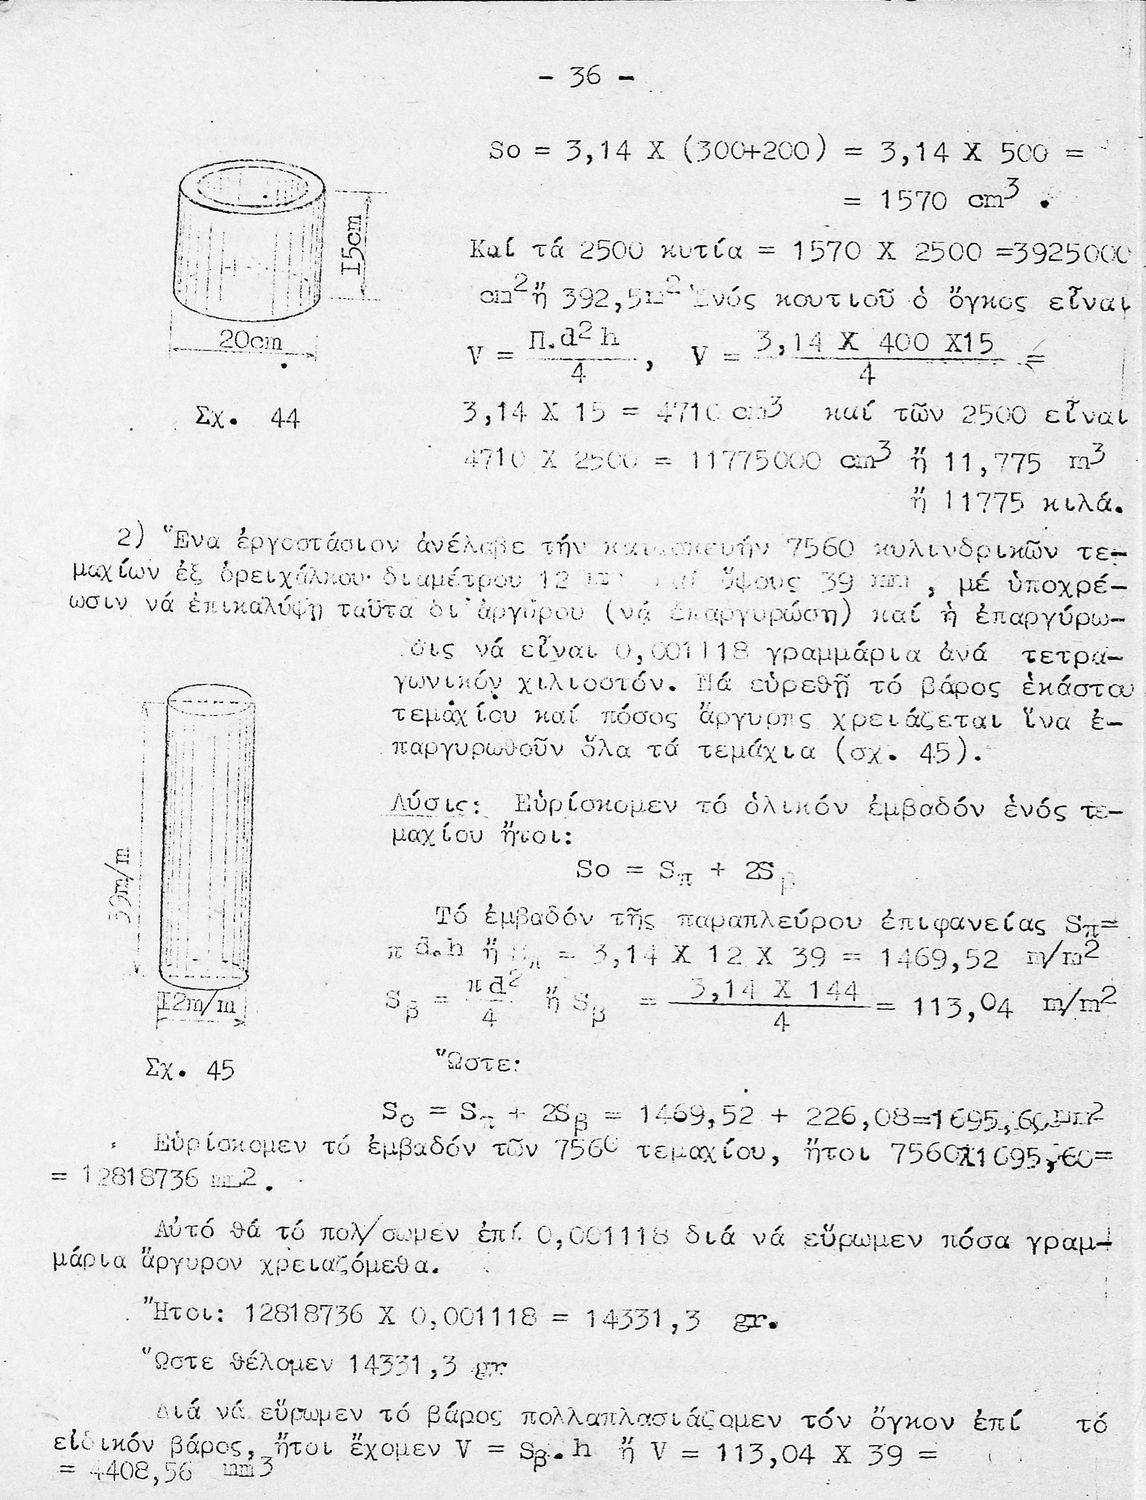 - 36 -
So = 3,14 X (300+200) = 3,14 X 500 =
= 1570 cm³ .
Καί τά 2500 κυτία = 1570 X 2500 =3925000
cm² ἤ 392,5m² Ἑνός κουτιοῦ ὁ ὄγκος εἶναι
V = Π.d² h / 4 , V = 3,14 X 400 X15 / 4 =
3,14 X 15 = 4710 cm3 καί τῶν 2500 εἶναι
4710 X 2500 = 11775000 cm3 ἤ 11,775 m3
ἤ 11775 κιλά.
15cm
20cm
Σχ. 44
2) Ἕνα ἐργοστάσιον ἀνέλαβε τήν κατασκευήν 7560 κυλινδρικῶν τε-
μαχίων ἐξ ὀρειχάλκου διαμέτρου 12 καί ὕψους 39 mm , μέ ὑποχρέ-
ωσιν νά ἐπικαλύψῃ ταῦτα δι'ἀργύρου (νά ἐπαργυρώση) καί ἡ ἐπαργύρω-
σις νά εἶναι 0,001118 γραμμάρια ἀνά τετρα-
γωνικόν χιλιοστόν. Νά εὑρεθῇ τό βάρος ἑκάστου
τεμαχίου καί πόσος ἄργυρης χρειάζεται ἵνα ἐ-
παργυρωθοῦν ὅλα τά τεμάχια (σχ. 45).
39m/m
12m/m
Σχ. 45
Λύσις: Εὑρίσκομεν τό ὁλικόν ἐμβαδόν ἑνός τε-
μαχίου ἤτοι:
So = Sπ + 2Sβ
Τό ἐμβαδόν τῆς παραπλεύρου ἐπιφανείας Sπ=
π d.h ἤ Sπ = 3,14 X 12 X 39 = 1469,52 m/m2
Sβ = πd² / 4 ἤ Sβ = 3,14 X 144 / 4 = 113,04 m/m2
Ὥστε:
So = Sπ + 2Sβ = 1469,52 + 226,08=1695,60mm2
Εὑρίσκομεν τό ἐμβαδόν τῶν 7560 τεμαχίου, ἤτοι 7560X1695,60=
= 12818736 mm2.
Αὐτό θά τό πολ/σωμεν ἐπί 0,001118 διά νά εὕρωμεν πόσα γραμ-
μάρια ἄργυρον χρειαζόμεθα.
Ἤτοι: 12818736 X 0,001118 = 14331,3 gr.
Ὥστε θέλομεν 14331,3 gr
Διά νά εὕρωμεν τό βάρος πολλαπλασιάζομεν τόν ὄγκον ἐπί τό
εἰδικόν βάρος, ἤτοι ἔχομεν V = Sβ.h ἤ V = 113,04 X 39 =
= 4408,56 mm3